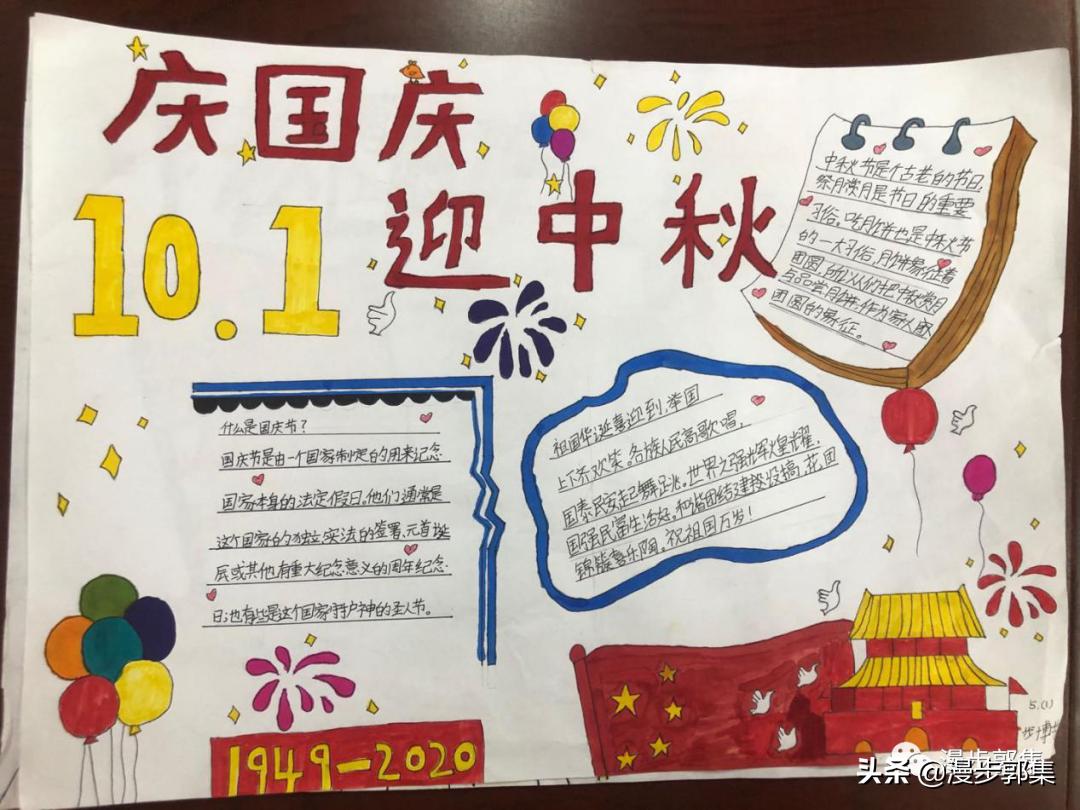 庆国庆
10.1
迎中秋
中秋节是个古老的节日,
祭月赏月是节日的重要
习俗。吃月饼也是中秋节
的一大习俗,月饼象征着
团圆,所以人们把中秋赏月
与品尝月饼,作为家人团
团圆的象征。
什么是国庆节?
国庆节是由一个国家制定的用来纪念
国家本身的法定假日。他们通常是
这个国家的独立、宪法的签署、元首诞
辰或其他有重大纪念意义的周年纪念
日;也有些是这个国家守护神的圣人节。
祖国华诞喜迎到,举国
上下齐欢笑。各族人民高歌唱,
国泰民安起舞蹈。世界之强辉煌耀,
国强民富生活好。和谐团结建设搞,花团
锦簇喜乐陶。祝祖国万岁!
1949-2020
5.(1)
漫步郭集
头条@漫步郭集